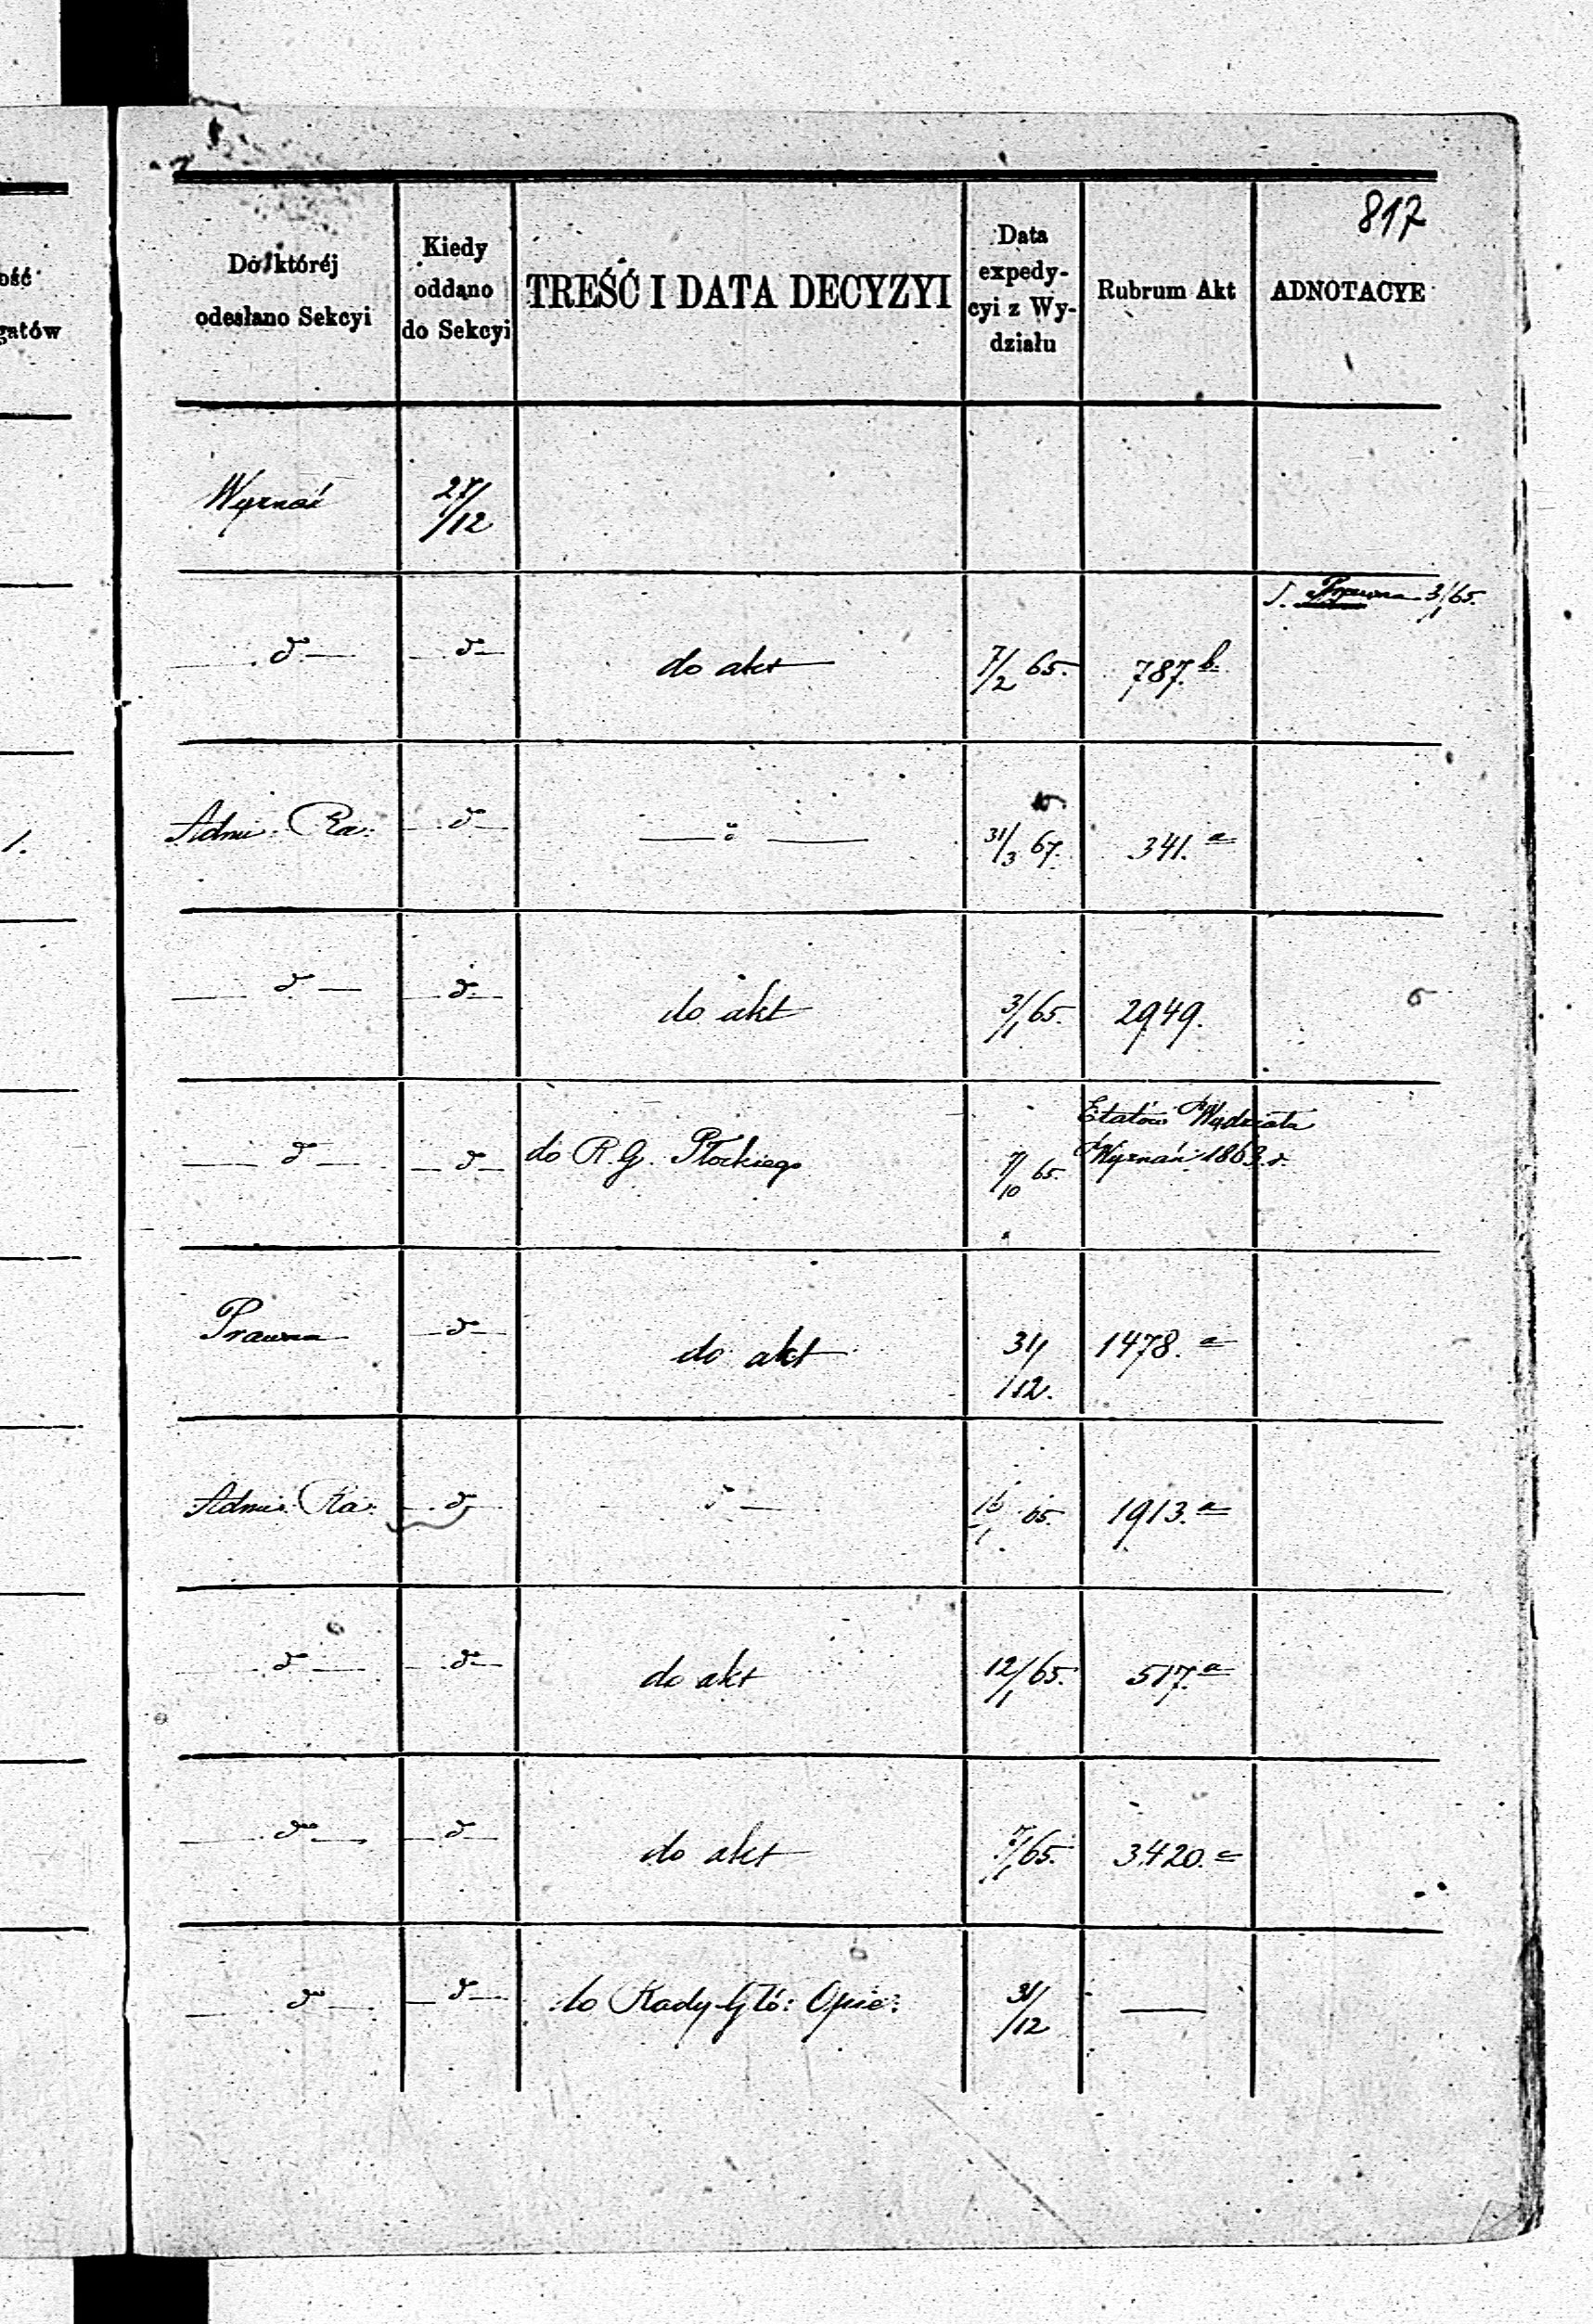 817
ość
gatów
Do któréj
odesłano Sekcyi
Kiedy
oddano
do Sekcyi
TREŚĆ I DATA DECYZYI
Data
expedy-
cyi z Wy-
działu
Rubrum Akt
ADNOTACYE
Wyznań 27/12
S. Prawna 3/1 65.
— d° — — d° — do akt 7/2 65. 787. b.
1.
Admi: Ra: — d° — — " — 31/3 67. 341. a
— d° — — d° — do akt 3/1 65. 2949.
Etatów Wydziału
— d° — — d° — do R. G. Płockiego 7/10 65. Wyznań 1863. r.
Prawna — d° — do akt 31/12. 1478. a
Admi: Ra: — d° — — " — 16/1 65. 1913. a
— d° — — d° — do akt 12/1 65. 517. a
— d° — — d° — do akt 7/1 65. 3420. a
— d° — — d° — do Rady Głó: Opie: 31/12 —